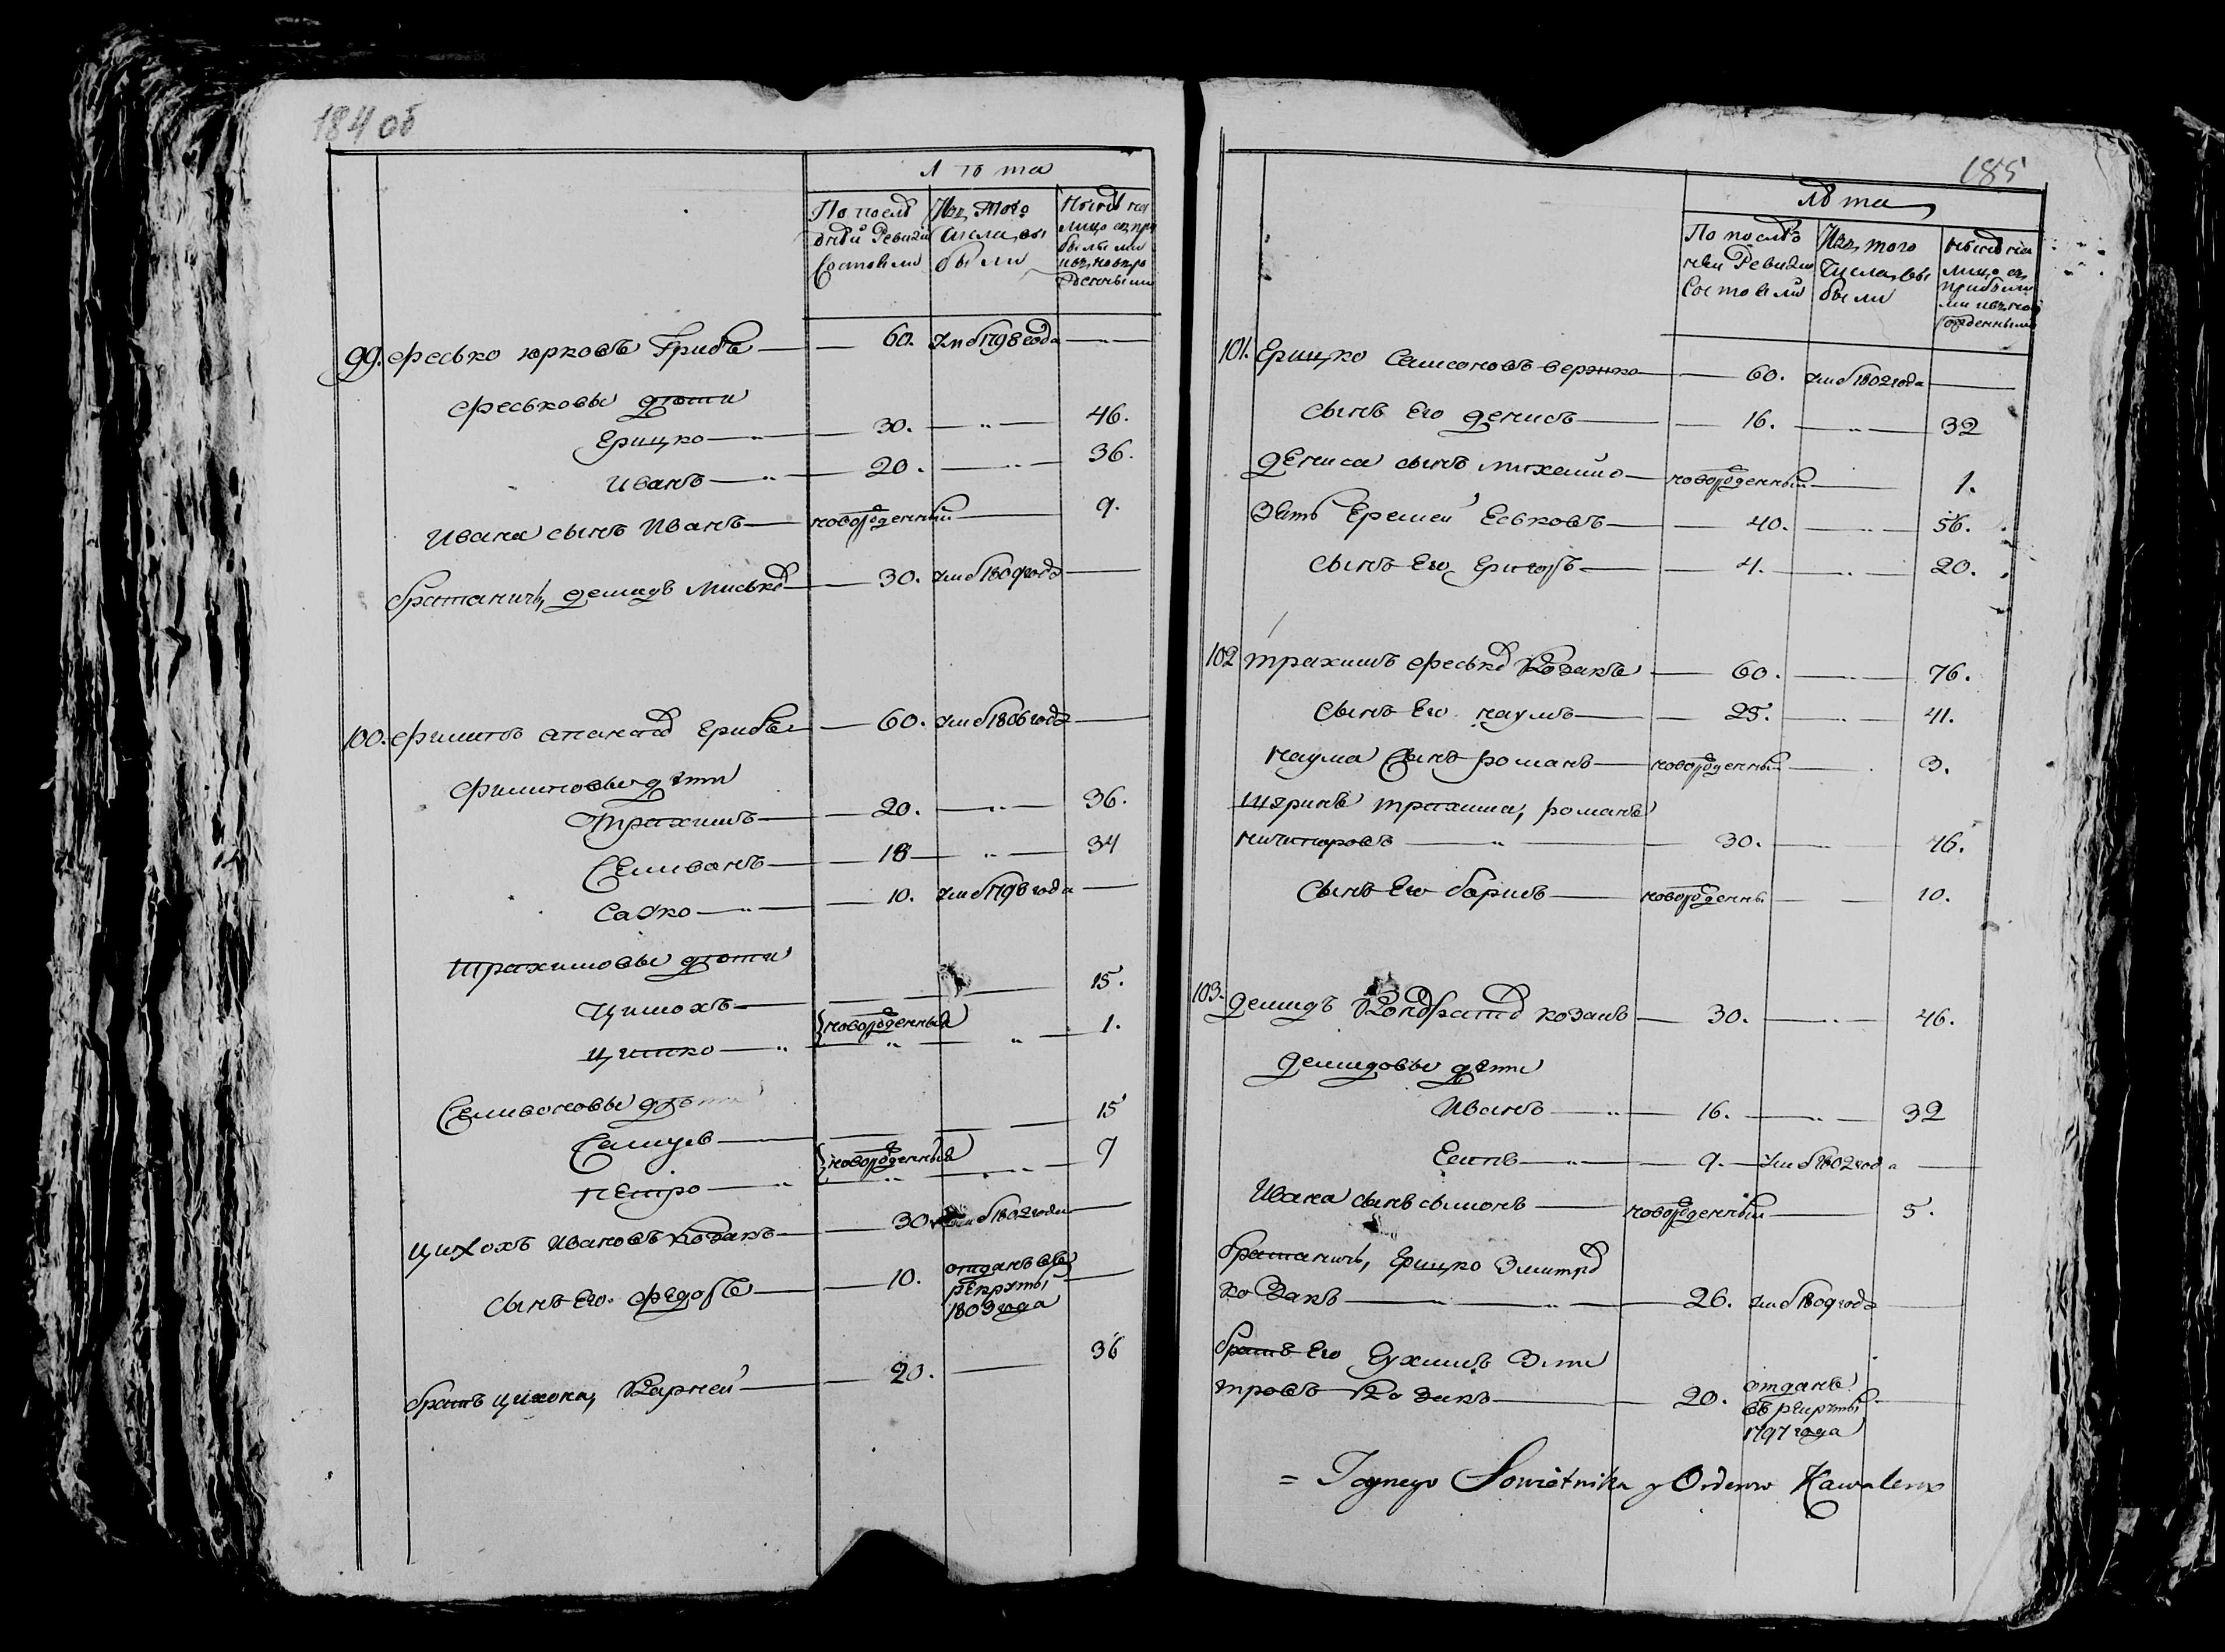 184 об
Лѣта
По послѣдней Ревизии Состояли
Изъ того Числа выбыли
Ныне на лицо съ прибылыми и новорожденными
99. Фесько Юрковъ Грибъ — 60. Умеръ 1798 года —
Феськовы дѣти
Грицко — 30. — 46.
Иванъ — 20. — 36.
Ивана сынъ Иванъ — новорожденный — 9.
братаничъ, демидъ Миськовъ — 30. Умеръ 1809 года —
100. Филипъ апанасовъ Грибъ — 60. Умеръ 1806 года —
Филиповы дѣти
Трахимъ — 20. — 36.
Селиванъ — 18 — 34
Савко — 10. Умеръ 1798 года —
Трахимовы дѣти
Цимохъ — 15.
новорожденные
Цишко — 1.
Селивоновы дѣти
Самуев — 15
новорожденные
Петро — 9
Цихонъ Ивановъ Козакъ — 30. Умеръ 1802 года —
сынъ Его Федоръ — 10. отданъ въ рекруты 1803 года —
братъ цихона, Карней — 20. — 36
185
Лѣта
По последней Ревизии Состояли
Изъ того Числа выбыли
ныне на лицо съ прибылыми и новорожденными
101. Грицко Самсоновъ верэнка — 60. Умеръ 1802 года —
сынъ Его денисъ — 16. — 32
дениса сынъ михайло — новорожденный — 1.
Зять Еремей Еськовъ — 40. — 56.
сынъ Его Григоръ — 4. — 20.
102 трахимъ Феськовъ Козакъ — 60. — 76.
сынъ Его наумъ — 25. — 41.
наума Сынъ романъ — новорожденный — 3.
Шуринъ трахима, романъ
ничипоровъ — 30. — 46.
сынъ Его борисъ — новорожденный — 10.
103. демидъ Кондратовъ козакъ — 30. — 46.
демидовы дѣти
Иванъ — 16. — 32
Есипъ — 9. — Умеръ 1802 года —
Ивана сынъ сымонъ — новорожденный — 5.
братаничъ, Грицко Змитровъ
козакъ — 26. Умеръ 1809 года —
братъ Его Еухимъ Зми
тровъ Козакъ — 20. отданъ въ рекруты 1797 года —
= Taynego Sowietnika y Orderow Kawalera